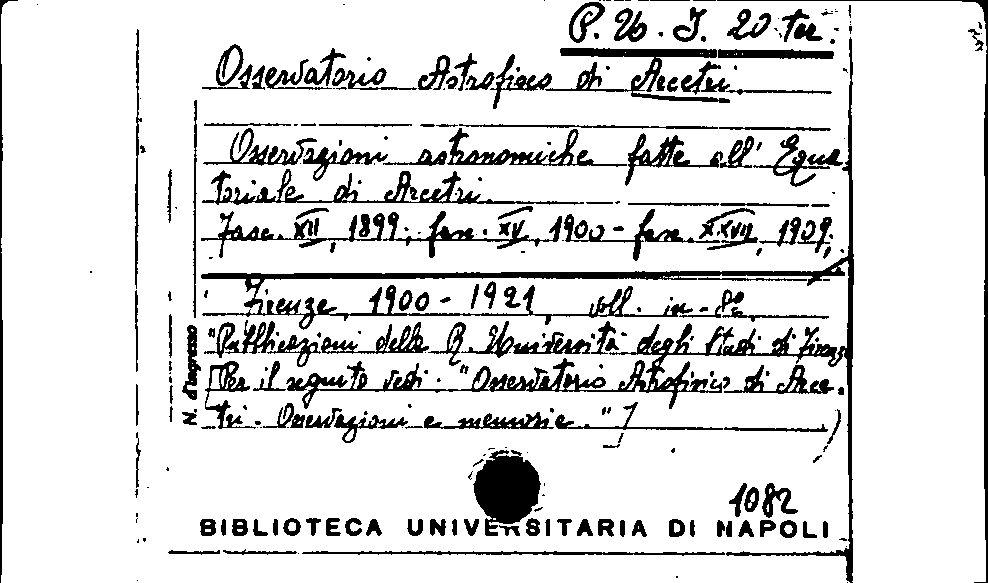 P. Ub. I. 20 ter.
Osservatorio Astrofisico di Arcetri.
Osservazioni astronomiche fatte all' Equa-
toriale di Arcetri.
Fasc. XII, 1899; fasc. XV, 1900 - fasc. XXVII, 1909;
Firenze, 1900 - 1921, voll. in-8º.
"Pubblicazioni della R. Università degli Studi di Firenze
[Per il seguito vedi: "Osservatorio Astrofisico di Arce-
tri. Osservazioni e memorie."]
N. d'ingresso
1082
BIBLIOTECA UNIVERSITARIA DI NAPOLI